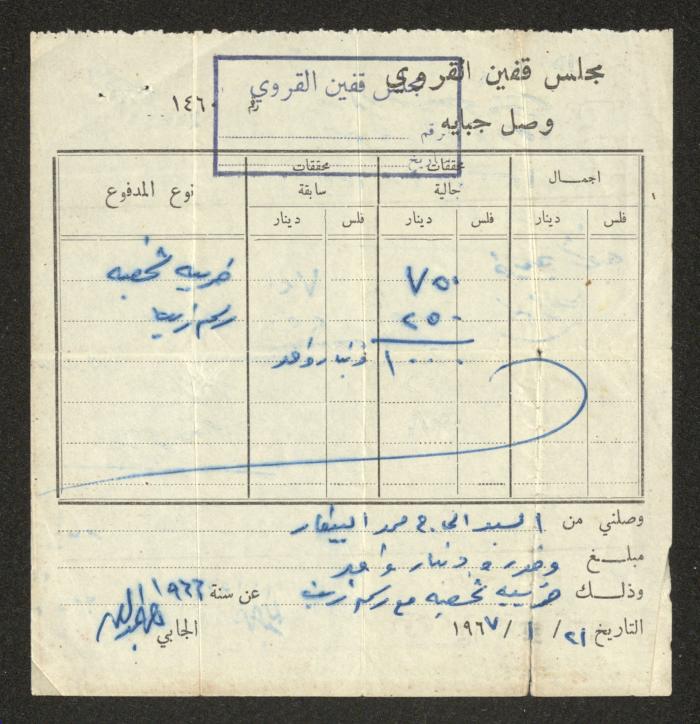 مجلس قفين القروي
مجلس قفين القروي
رقم ١٤٦٠
وصل جبايه
رقم
تاريخ
اجمـــال محققات حالية محققات سابقة نوع المدفوع
فلس دينار فلس دينار فلس دينار
٧٥٠ ضريبه شخصيه
٢٥٠ رسم زيت
١٠٠٠ دينار واحد
وصلني من السيد الحاج محمد البيطار
مبلـــغ وقدره دينار واحد
وذلـــك ضريبه شخصيه مع رسم زيت عن سنة ١٩٦٦
التاريخ ٢١ / ١ / ١٩٦٧ الجابي